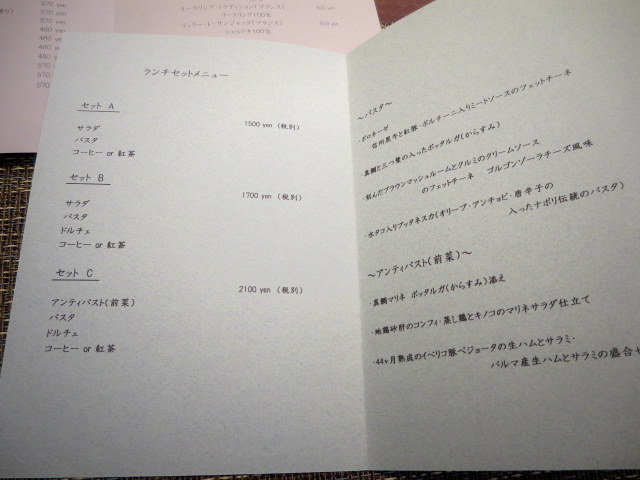 リースリング トラディション(フランス)
リースリング100%
シャルドネ100%
570 yen
480 yen
480 yen
570 yen
570
ランチセットメニュー
セット A
1500 yen (税別)
サラダ
パスタ
コーヒー or 紅茶
セット B
1700 yen (税別)
サラダ
パスタ
ドルチェ
コーヒー or 紅茶
セット C
2100 yen (税別)
アンティパスト(前菜)
パスタ
ドルチェ
コーヒー or 紅茶
～パスタ～
・ボロネーゼ
信州黒牛と紅豚・ポルチーニ入りミートソースのフェットチーネ
・真鯛と三つ葉の入ったボッタルガ(からすみ)
・刻んだブラウンマッシュルームとクルミのクリームソース
のフェットチーネ ゴルゴンゾーラチーズ風味
・水タコ入りプッタネスカ(オリーブ・アンチョビ・唐辛子の
入ったナポリ伝統のパスタ)
～アンティパスト(前菜)～
・真鯛マリネ ボッタルガ(からすみ)添え
・地鶏砂肝のコンフィ・蒸し鶏とキノコのマリネサラダ仕立て
・44ヶ月熟成のイベリコ豚ベジョータの生ハムとサラミ・
パルマ産生ハムとサラミの盛合せ